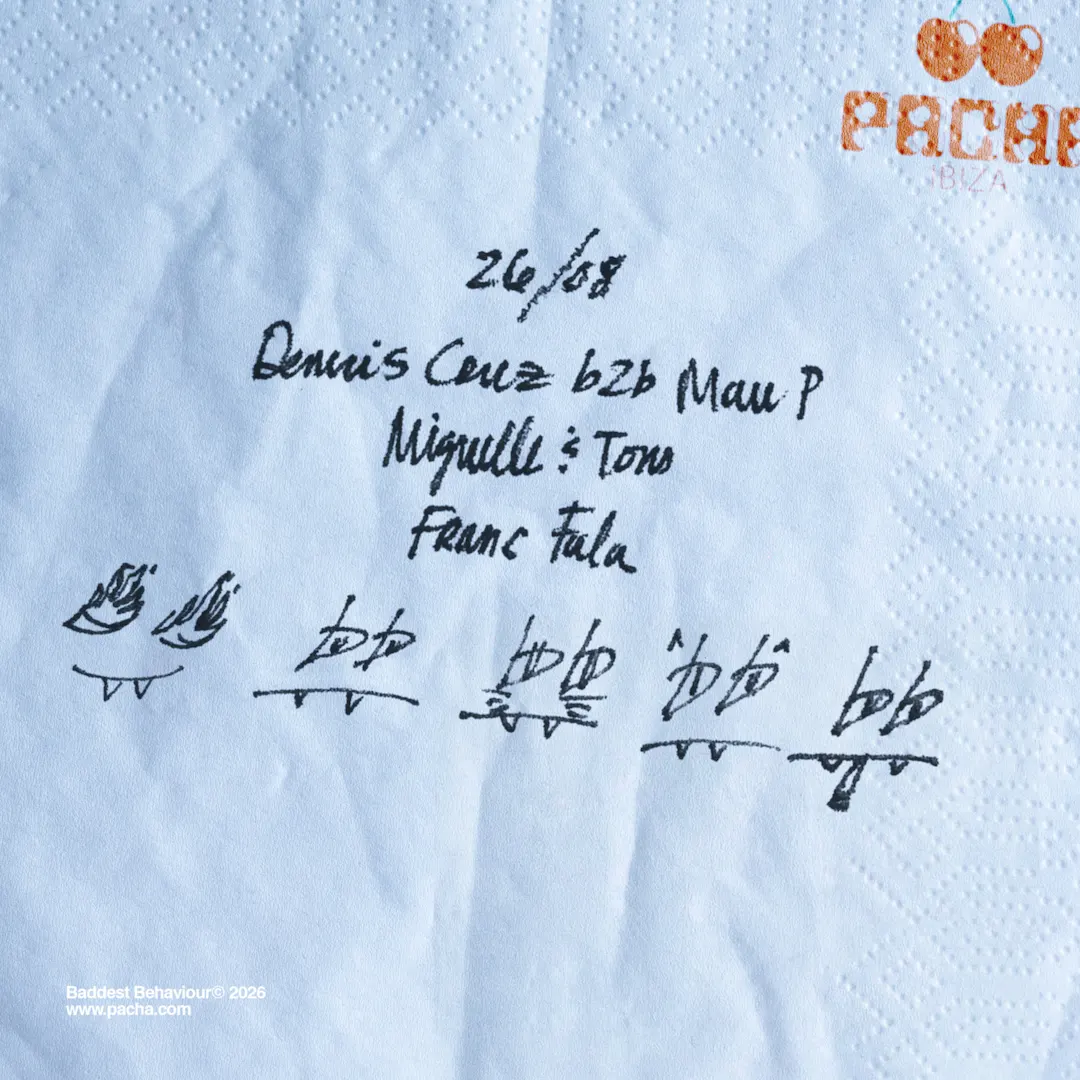 PACHA
IBIZA
26/08
Dennis Cruz b2b Mau P
Miguelle & Tons
Franc Fala
Baddest Behaviour© 2026
www.pacha.com